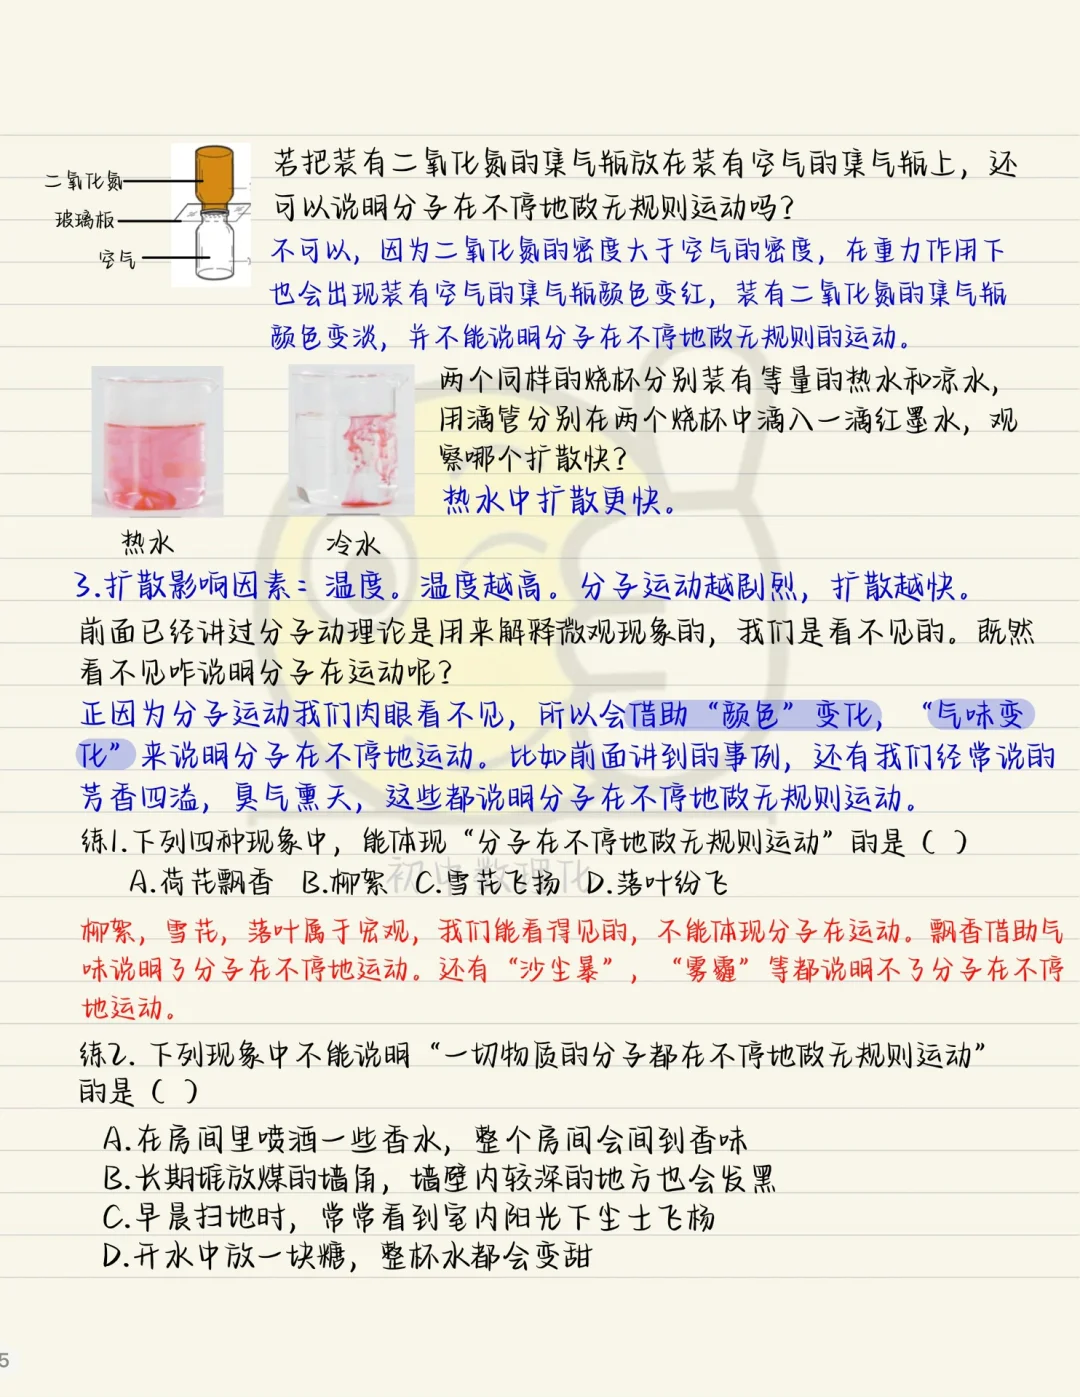 二氧化氮
玻璃板
空气
若把装有二氧化氮的集气瓶放在装有空气的集气瓶上，还
可以说明分子在不停地做无规则运动吗？
不可以，因为二氧化氮的密度大于空气的密度，在重力作用下
也会出现装有空气的集气瓶颜色变红，装有二氧化氮的集气瓶
颜色变淡，并不能说明分子在不停地做无规则的运动。
两个同样的烧杯分别装有等量的热水和凉水，
用滴管分别在两个烧杯中滴入一滴红墨水，观
察哪个扩散快？
热水中扩散更快。
热水
冷水
3.扩散影响因素：温度。温度越高。分子运动越剧烈，扩散越快。
前面已经讲过分子动理论是用来解释微观现象的，我们是看不见的。既然
看不见咋说明分子在运动呢？
正因为分子运动我们肉眼看不见，所以会借助“颜色”变化，“气味变
化”来说明分子在不停地运动。比如前面讲到的事例，还有我们经常说的
芳香四溢，臭气熏天，这些都说明分子在不停地做无规则运动。
练1.下列四种现象中，能体现“分子在不停地做无规则运动”的是（ ）
A.荷花飘香 B.柳絮 C.雪花飞扬 D.落叶纷飞
初中数理化
柳絮，雪花，落叶属于宏观，我们能看得见的，不能体现分子在运动。飘香借助气
味说明了分子在不停地运动。还有“沙尘暴”，“雾霾”等都说明不了分子在不停
地运动。
练2.下列现象中不能说明“一切物质的分子都在不停地做无规则运动”
的是（ ）
A.在房间里喷洒一些香水，整个房间会闻到香味
B.长期堆放煤的墙角，墙壁内较深的地方也会发黑
C.早晨扫地时，常常看到室内阳光下尘土飞杨
D.开水中放一块糖，整杯水都会变甜
5